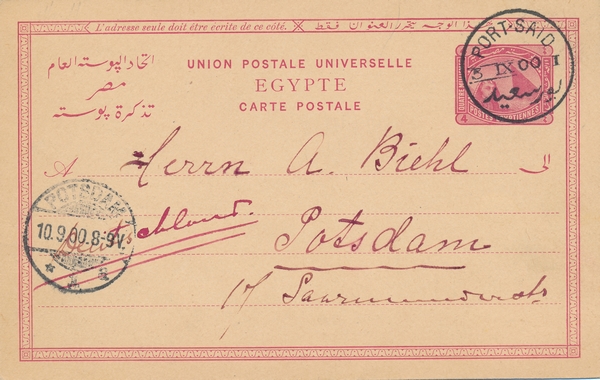 L'adresse seule doit être écrite de ce côté.
اتحاد البوسته العام
مصر
تذكرة بوسته
UNION POSTALE UNIVERSELLE
EGYPTE
CARTE POSTALE
PORT-SAID
3 IX 00 I
بور سعيد
4
A
Herrn A. Biehl
الى
Deutschland.
Potsdam
17 Saarmunderstr
POTSDAM
10.9.00.8-9V.